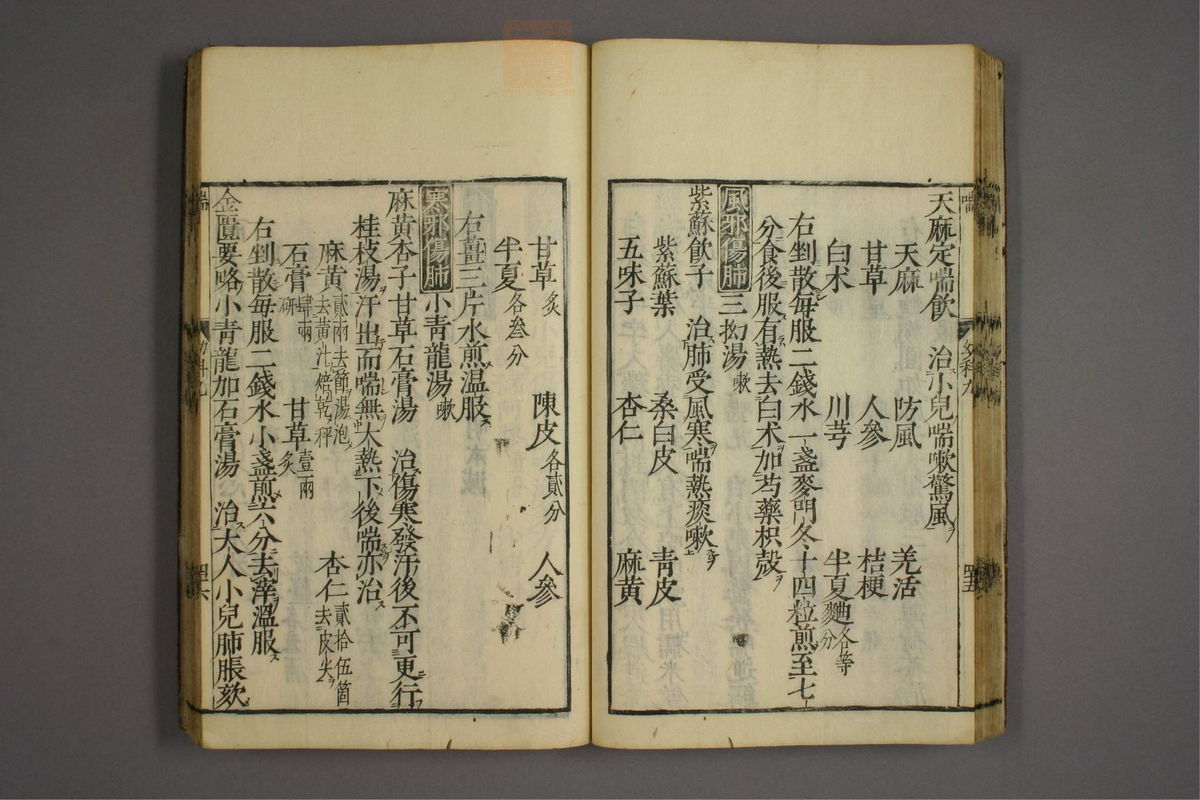 天麻定喘飲　治小兒喘嗽驚風
天麻　防風　羗活
甘草　人參　桔梗
白朮　川芎　半夏麯各等分
右剉散每服二錢水一盞麥門冬十四粒煎至七
分食後服有熱去白朮加芍藥枳殼
風邪傷肺　三拗湯嗽
紫蘇飲子　治肺受風寒喘熱痰嗽
紫蘇葉　桑白皮　青皮
五味子　杏仁　麻黃
甘草炙　陳皮各貳分　人參
半夏各叁分
右薑三片水煎溫服
寒邪傷肺　小青龍湯嗽
麻黃杏子甘草石膏湯　治傷寒發汗後不可更行
桂枝湯汗出而喘無大熱下後喘亦治
麻黃貳兩去節湯泡去黃汁焙乾秤　杏仁貳拾伍箇去皮尖
石膏肆兩研　甘草壹兩炙
右剉散每服二錢水小盞煎六分去滓溫服
金匱要略小青龍加石膏湯　治大人小兒肺脹欬
喘
四五
喘
四六